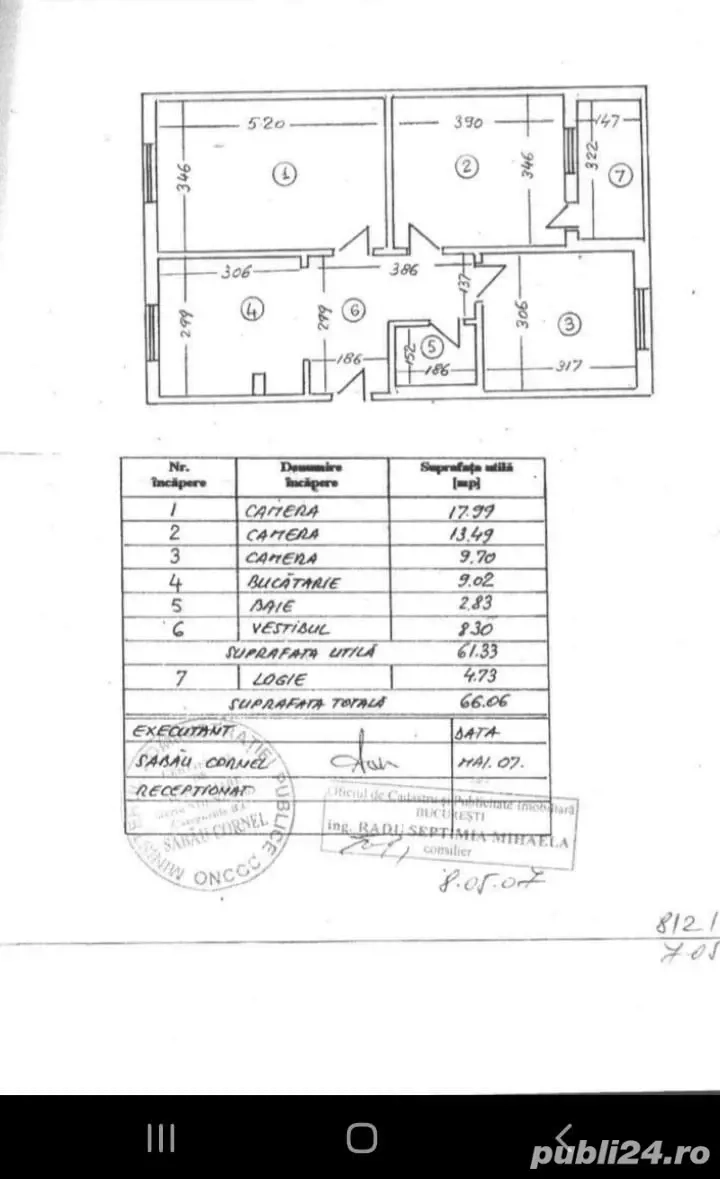 520
390
147
346
1
2
346
322
7
306
386
137
4
299
6
299
306
3
5
152
186
186
317
Nr. încăpere
Denumire încăpere
Suprafața utilă [mp]
1 CAMERA 17.99
2 CAMERA 13.49
3 CAMERA 9.70
4 BUCĂTARIE 9.02
5 BAIE 2.83
6 VESTIBUL 8.30
SUPRAFATA UTILĂ 61.33
7 LOGIE 4.73
SUPRAFATA TOTALĂ 66.06
EXECUTANT DATA
SABĂU CORNEL MAI.07.
RECEPTIONAT
PUBLICE
SABĂU CORNEL
ONCGC
Oficiul de Cadastru și Publicitate Imobiliară
BUCUREȘTI
ing. RADU SEPTIMIA MIHAELA
consilier
8.05.07
8121
705
publi24.ro